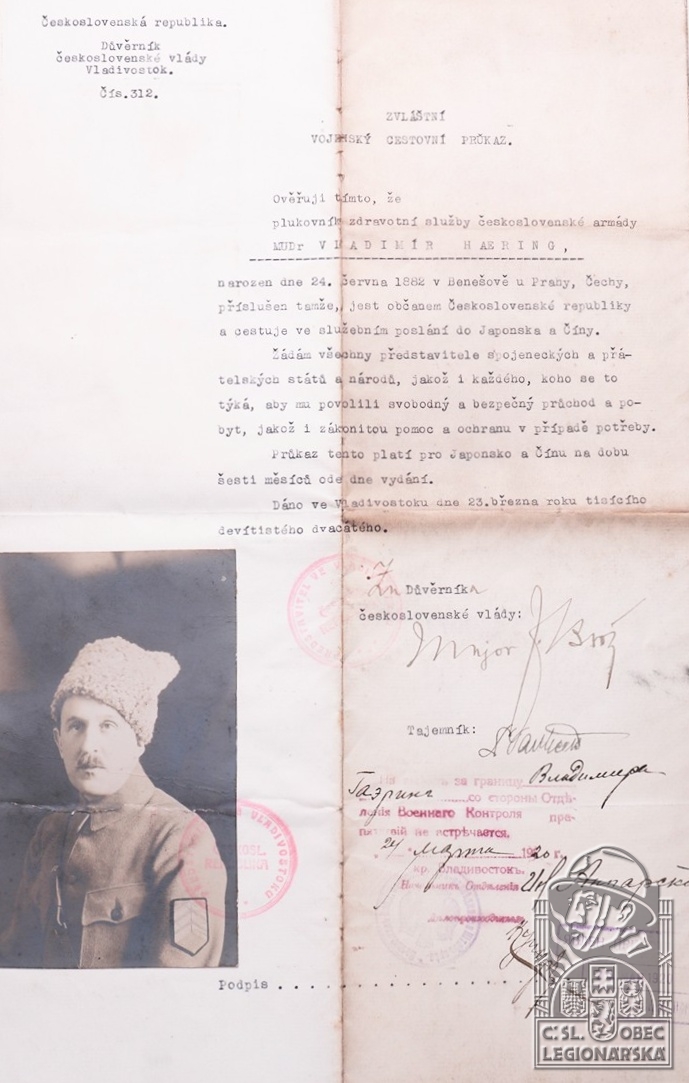 Československá republika.
Důvěrník
československé vlády
Vladivostok.
Čís.312.
ZVLÁŠTNÍ
VOJENSKÝ CESTOVNÍ PRŮKAZ.
Ověřuji tímto, že
plukovník zdravotní služby československé armády
MUDr VLADIMÍR HAERING,
narozen dne 24. června 1882 v Benešově u Prahy, Čechy,
příslušen tamže, jest občanem Československé republiky
a cestuje ve služebním poslání do Japonska a Číny.
Žádám všechny představitele spojeneckých a přá-
telských států a národů, jakož i každého, koho se to
týká, aby mu povolili svobodný a bezpečný průchod a po-
byt, jakož i zákonitou pomoc a ochranu v případě potřeby.
Průkaz tento platí pro Japonsko a Čínu na dobu
šesti měsíců ode dne vydání.
Dáno ve Vladivostoku dne 23.března roku tisícího
devítistého dvacátého.
Za Důvěrníka
československé vlády:
Major J. Brož
Tajemník:
за границу Владимира
Гаэринг со стороны Отдѣ-
ленія Военнаго Контроля пре-
пятствій не встрѣчается,
24 марта 1920 г.
кр. Владивостокъ.
Начальник Отдѣленія
Дѣлопроизводитель
VLADIVOSTOKU
ČESKOSL.
REPUBLIKA
Podpis . . . . . . . . . . . . . . . . . . . . . .
Č.SL. OBEC
LEGIONÁŘSKÁ